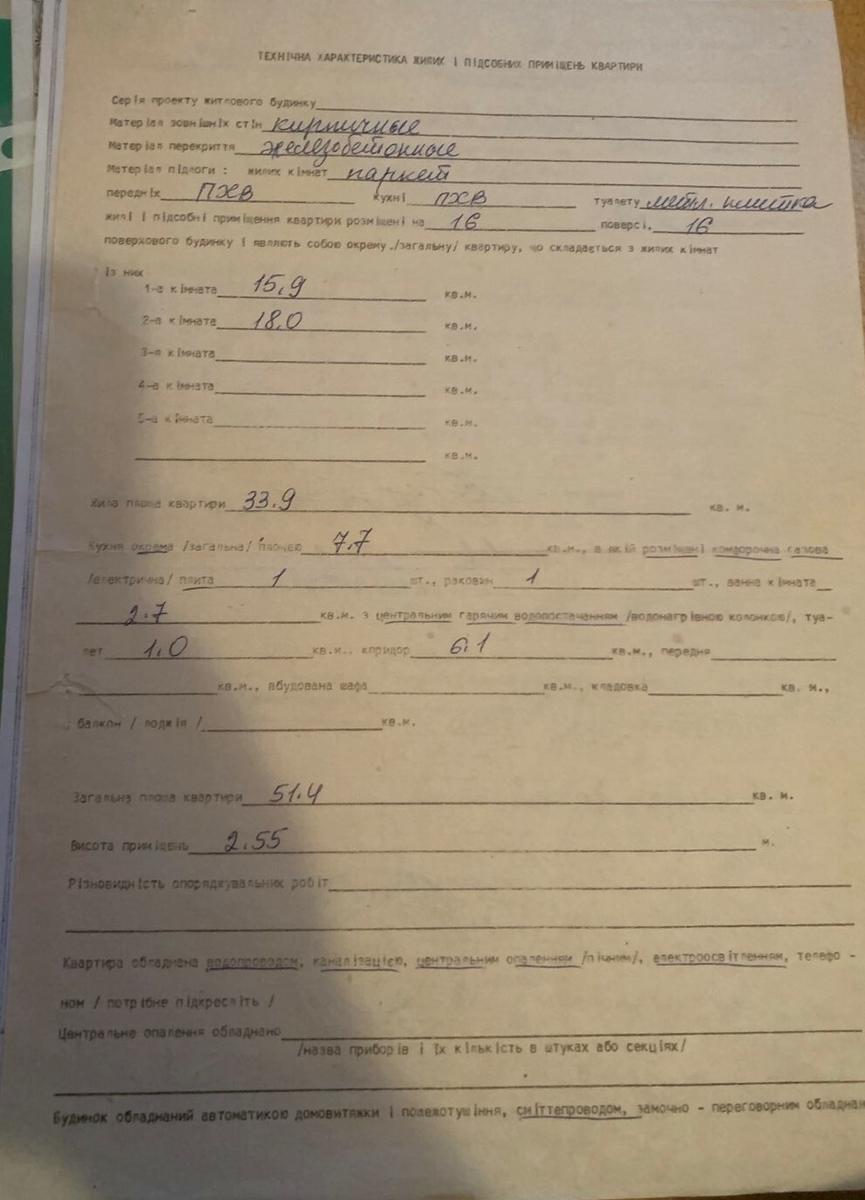 ТЕХНІЧНА ХАРАКТЕРИСТИКА ЖИЛИХ І ПІДСОБНИХ ПРИМІЩЕНЬ КВАРТИРИ
Серія проекту житлового будинку
Матеріал зовнішніх стін кирпичные
Матеріал перекриття железобетонные
Матеріал підлоги: жилих кімнат паркет
передніх ПХВ кухні ПХВ туалету метл. плитка
жилі і підсобні приміщення квартири розміщені на 16 поверсі, 16
поверхового будинку і являють собою окрему /загальну/ квартиру, що складається з жилих кімнат
Із них
1-а кімната 15,9 кв.м.
2-а кімната 18.0 кв.м.
3-я кімната кв.м.
4-а кімната кв.м.
5-а кімната кв.м.
кв.м.
Жила площа квартири 33.9 кв. м.
Кухня окрема /загальна/ площею 7.7 кв.м., в якій розміщені конфорочна газова
/електрична/ плита 1 шт., раковин 1 шт., ванна кімната
2.7 кв.м. з центральним гарячим водопостачанням /водонагрівною колонкою/, туа-
лет 1.0 кв.м., коридор 6.1 кв.м., передня
кв.м., вбудована шафа кв.м., кладовка кв. м.,
балкон / лоджія / кв.м.
Загальна площа квартири 51.4 кв. м.
Висота приміщень 2.55 м.
Різновидність опоряджувальних робіт
Квартира обладнана водопроводом, каналізацією, центральним опаленням /пічним/, електроосвітленням, телефо -
ном / потрібне підкресліть /
Центральне опалення обладнано
/назва приборів і їх кількість в штуках або секціях/
Будинок обладнаний автоматикою домовитяжки і пожежотушіння, сміттєпроводом, замочно - переговорним обладнан